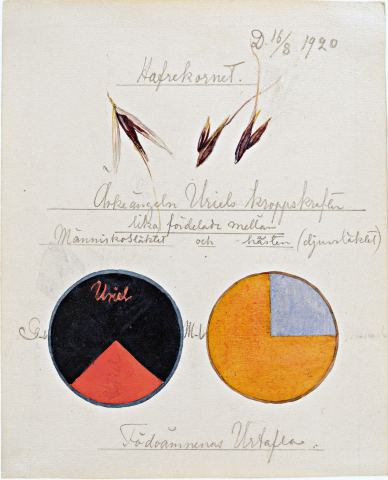 D. 16/8 1920
Hafrekornet.
Ärkeängeln Uriels kroppskrafter
lika fördelade mellan
Människosläktet och hästen (djursläktet)
Uriel
Födoämnenas Urtafla.